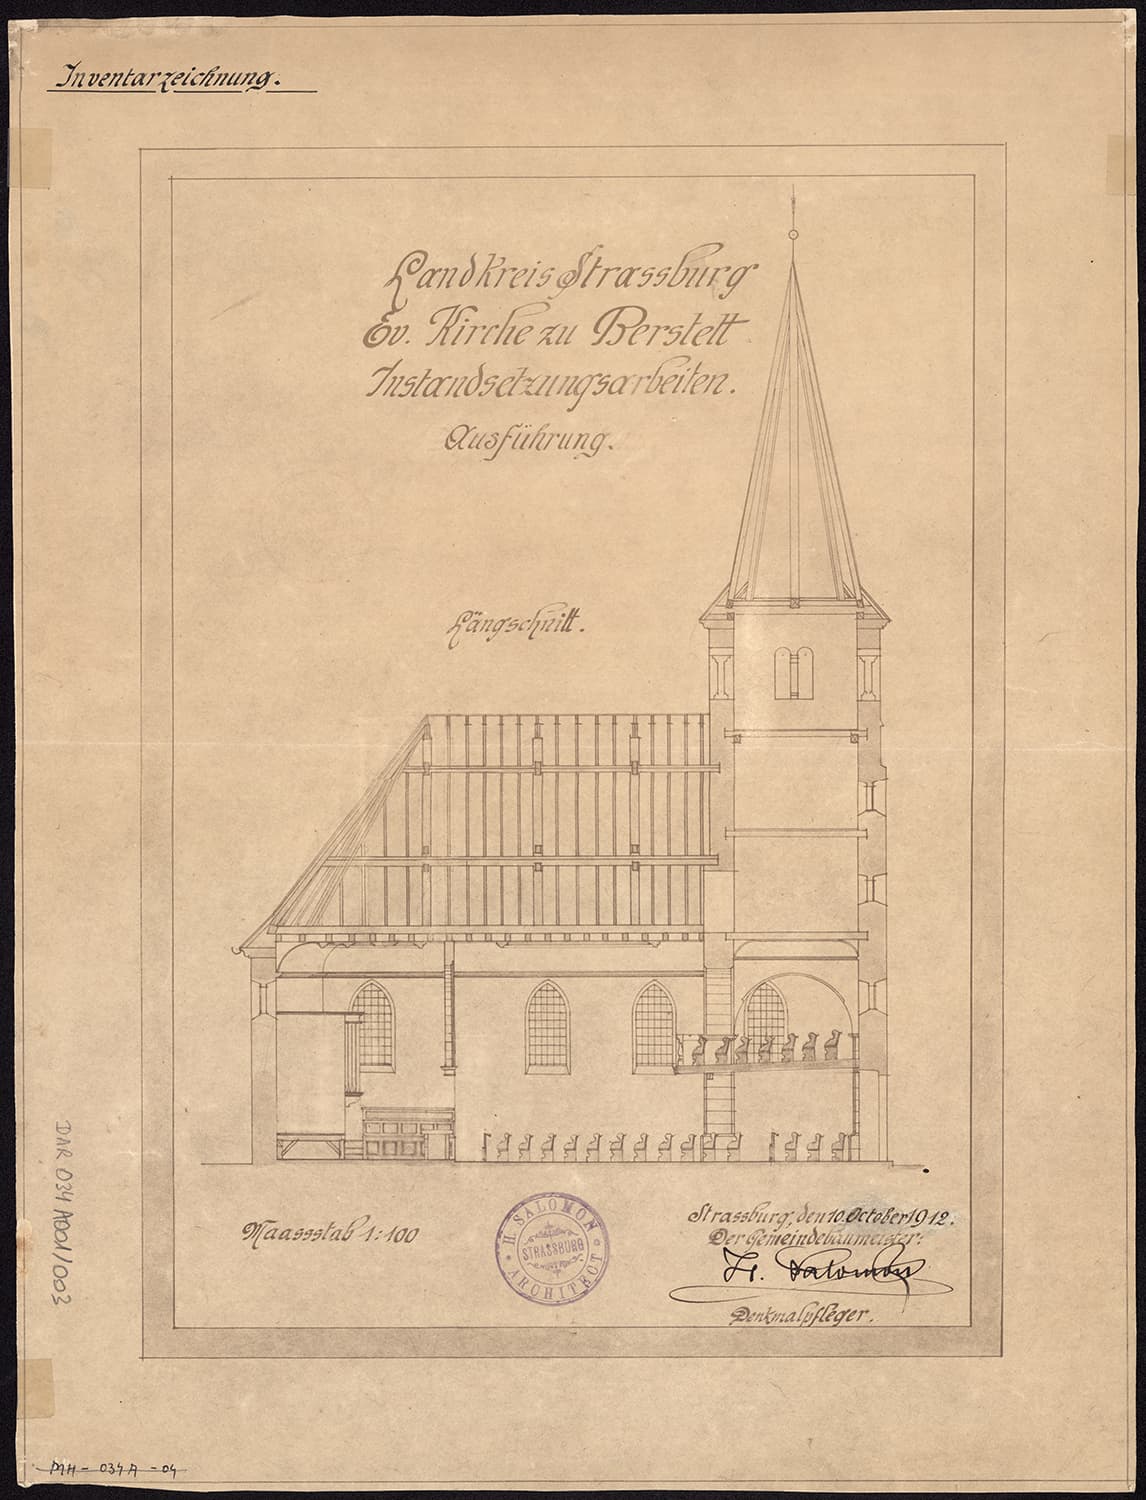 Inventarzeichnung.
Landkreis Strassburg
Ev. Kirche zu Berstett
Instandsetzungsarbeiten.
Ausführung.
Längschnitt.
Maassstab 1:100
H. SALOMON
STRASSBURG
ARCHITECT
Strassburg, den 10. October 1912.
Der Gemeindebaumeister:
H. Salomon
Denkmalpfleger.
MH-034A-04